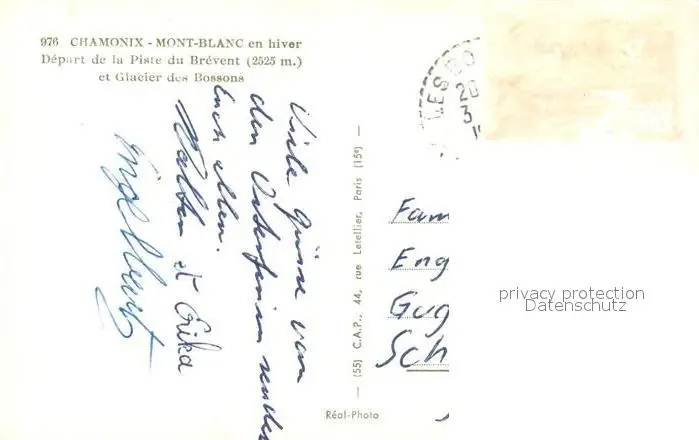 976 CHAMONIX - MONT-BLANC en hiver
Départ de la Piste du Brévent (2525 m.)
et Glacier des Bossons
Viele Grüsse von
den Osterferien senden
Euch allen.
Walter et Erika
— (55) C.A.P., 44, rue Letellier, Paris (15e) —
Réal-Photo
LES BO
3
Fam
Eng
Gug
Sch
privacy protection
Datenschutz